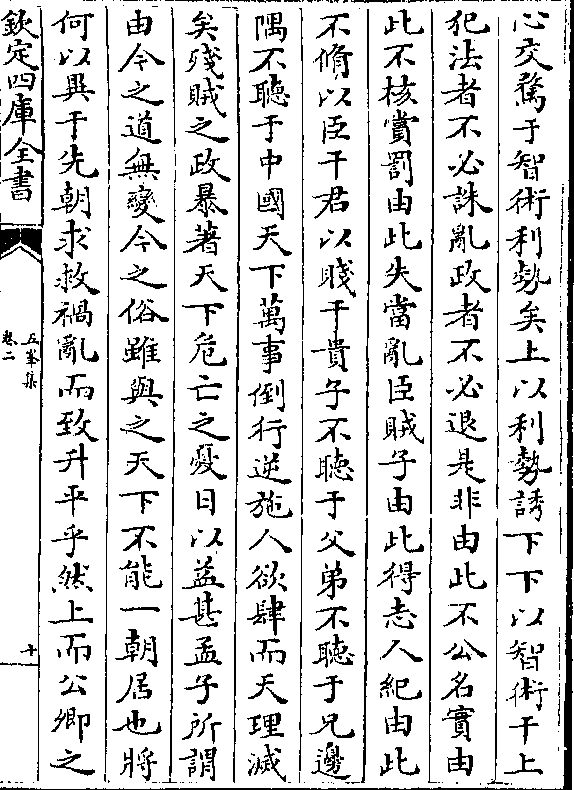 心交騖于智術利勢矣上以利勢誘下下以智術干上
犯法者不必誅亂政者不必退是非由此不公名實由
此不核賞罰由此失當亂臣賊子由此得志人紀由此
不脩以臣干君以賤干貴子不聽于父弟不聽于兄邊
隅不聽于中國天下萬事倒行逆施人欲肆而天理滅
矣殘賊之政暴著天下危亡之憂日以益甚孟子所謂
由今之道無變今之俗雖與之天下不能一朝居也將
何以異于先朝求救禍亂而致升平乎然上而公卿之
欽定四庫全書
五峯集
卷二
十